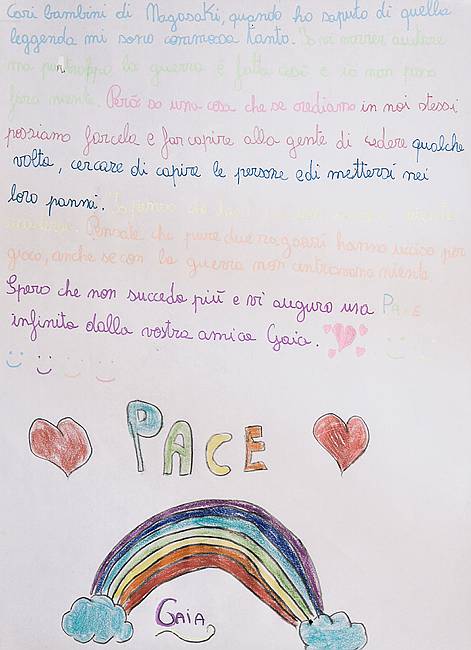 Cari bambini di Nagasaki, quando ho saputo di quella
leggenda mi sono commossa tanto. Io vi vorrei aiutare
ma purtroppo la guerra è fatta così e io non posso
fare niente. Però so una cosa che se crediamo in noi stessi
possiamo farcela e far capire alla gente di cedere qualche
volta, cercare di capire le persone e di mettersi nei
loro panni. Io penso che
Pensate che pure due ragazzi hanno ucciso per
gioco, anche se con la guerra non centravano niente.
Spero che non succeda più e vi auguro una PACE
infinita dalla vostra amica Gaia.
PACE
GAIA